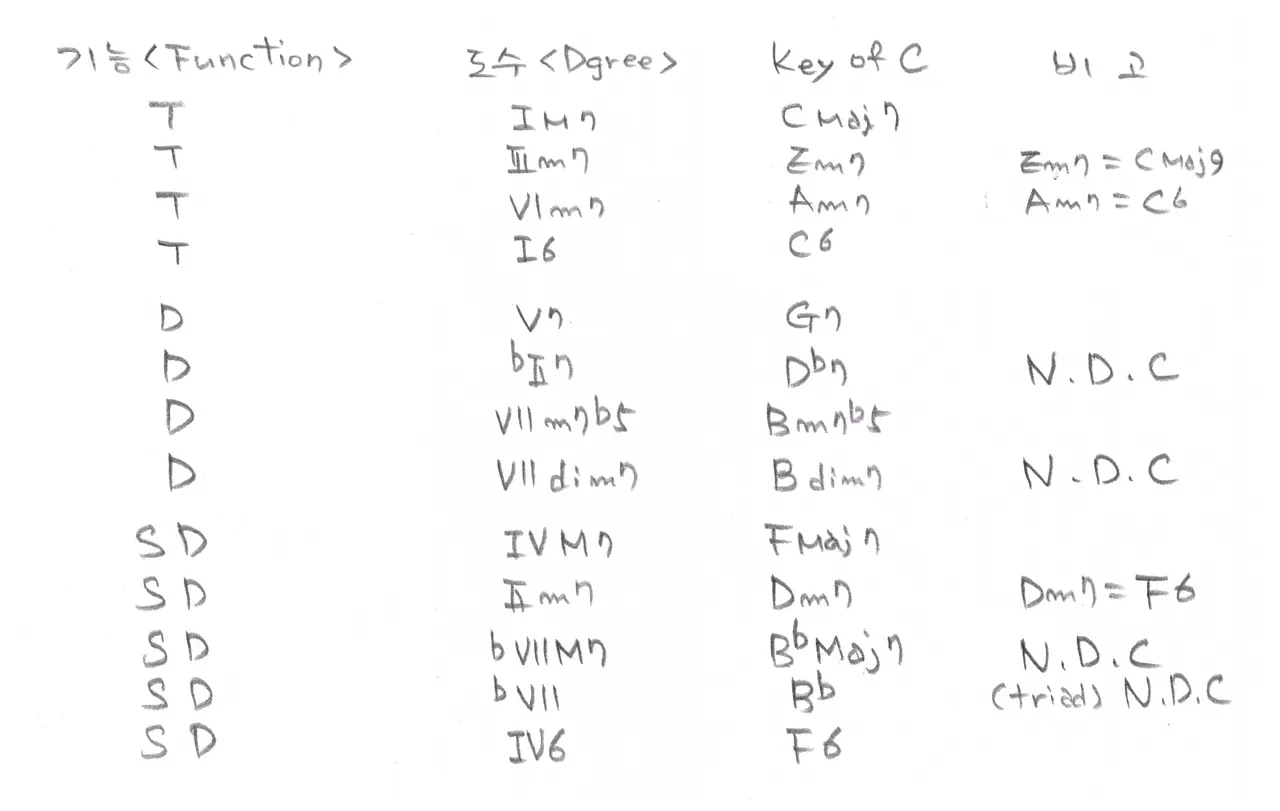 기능<Function> 도수<Dgree> Key of C 비고
T IM7 CMaj7
T IIIm7 Em7 Em7=CMaj9
T VIm7 Am7 Am7=C6
T I6 C6
D V7 G7
D bII7 Db7 N.D.C
D VIIm7b5 Bm7b5
D VIIdim7 Bdim7 N.D.C
SD IVM7 FMaj7
SD IIm7 Dm7 Dm7=F6
SD bVIIM7 BbMaj7 N.D.C
SD bVII Bb (triad) N.D.C
SD IV6 F6